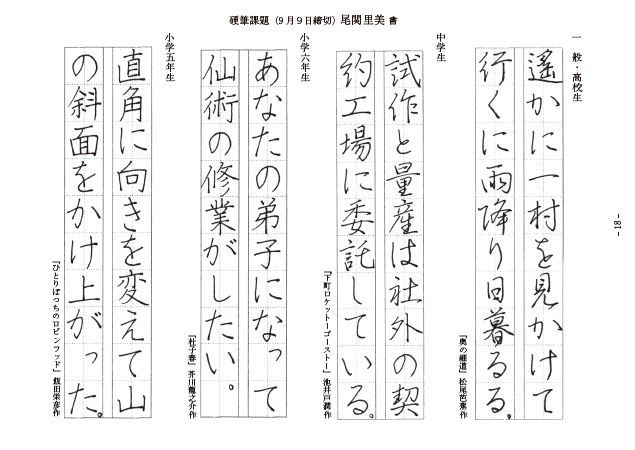 硬筆課題（９月９日締切）尾関里美 書
一 般・高校生
遙かに一村を見かけて
行くに雨降り日暮るる。
『奥の細道』松尾芭蕉作
中学生
試作と量産は社外の契
約工場に委託している。
『下町ロケットーゴーストー』池井戸潤作
小学六年生
あなたの弟子になって
仙術の修業がしたい。
『杜子春』芥川龍之介作
小学五年生
直角に向きを変えて山
の斜面をかけ上がった。
『ひとりぼっちのロビンフッド』飯田栄彦作
- 18 -